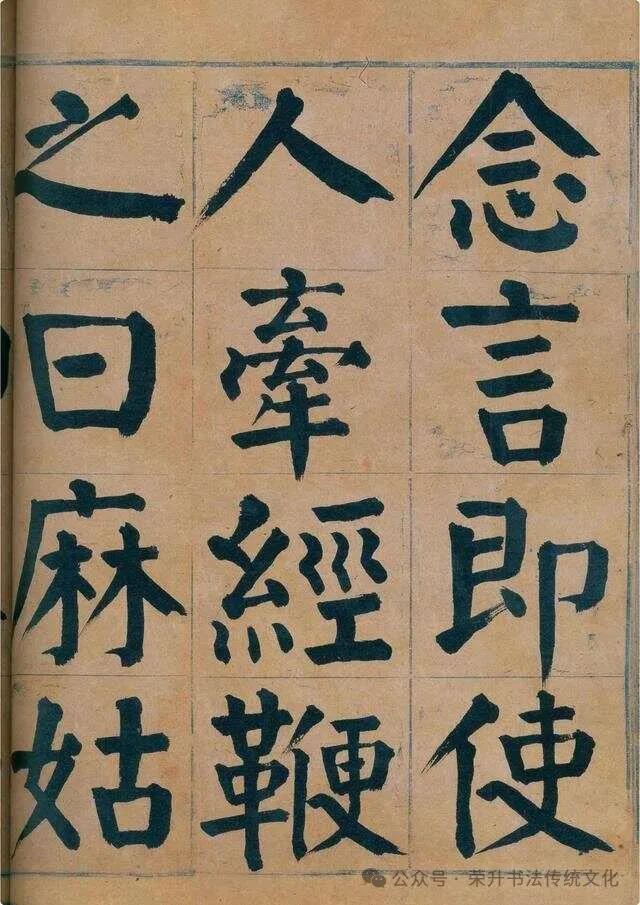 念言即使
人牽經鞭
之曰麻姑
公众号·荣升书法传统文化